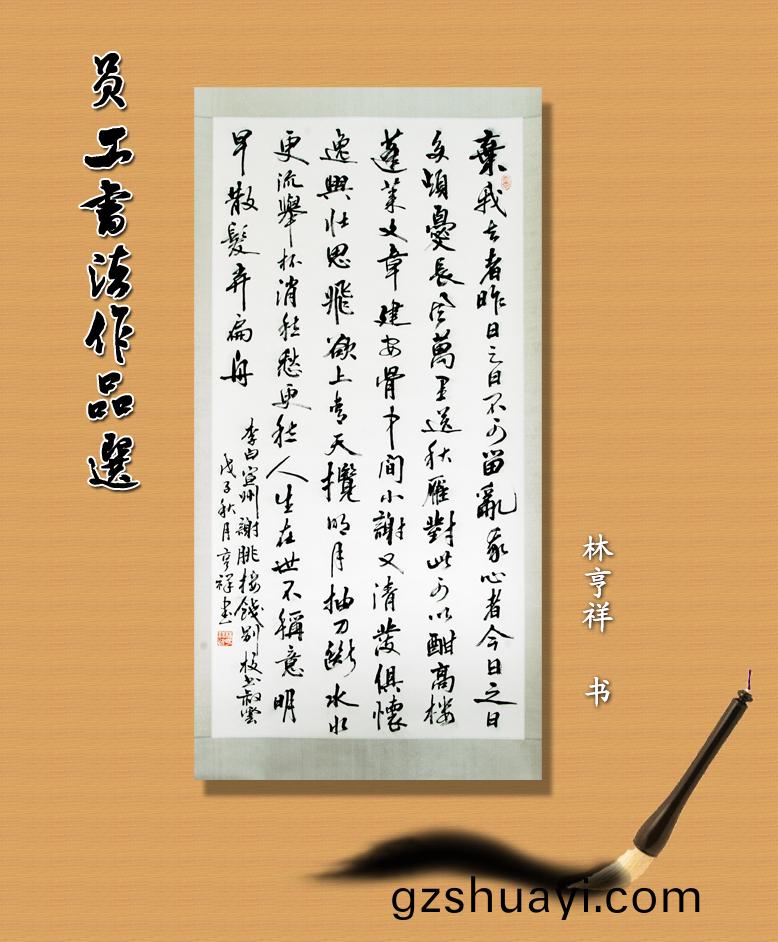 员工書法作品選
棄我去者昨日之日不可留亂我心者今日之日
多煩憂長风萬里送秋雁對此可以酣高楼
蓬萊文章建安骨中間小謝又清發俱懷
逸興壯思飛欲上青天攬明月抽刀斷水水
更流舉杯消愁愁更愁人生在世不稱意明
早散髮弄扁舟
李白宣州謝朓楼餞别校书叔雲
戊子秋月亨祥書
林亨祥 书
gzshuayi.com